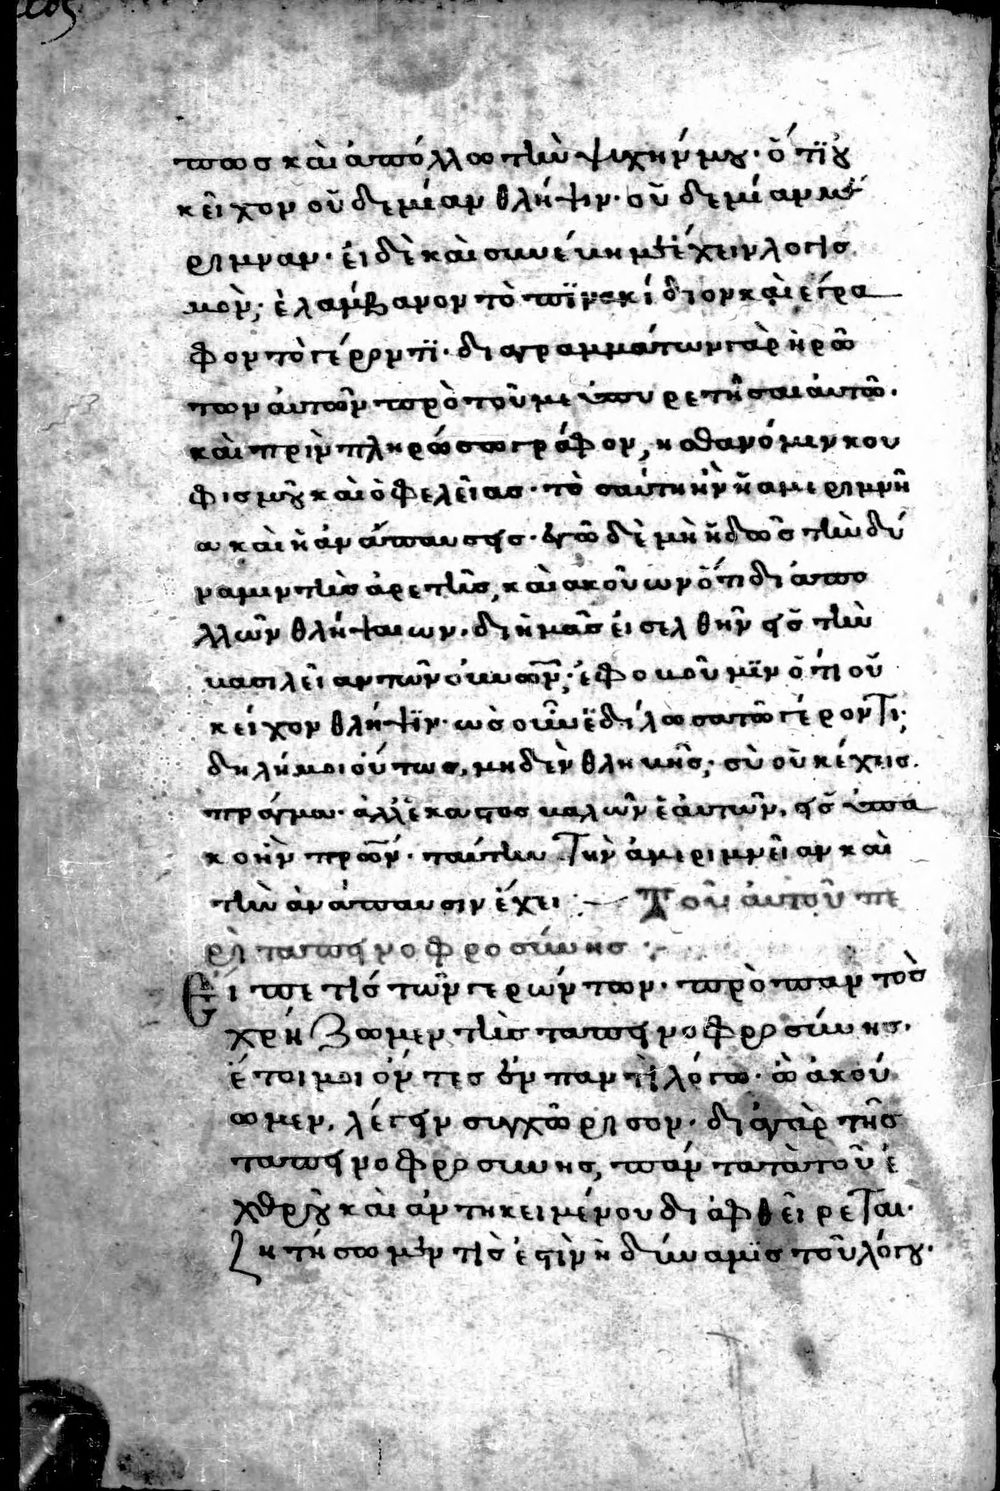 πωσ καὶ ἀπόλλω τὴν ψυχήν μου· ὅτϊ οὐ
κεῖχον οὐδεμίαν θλήψιν· οὐδεμίαν μέ
ριμναν· εἰ δὲ καὶ συνέβη μὲ ἔχειν λογισ
μὸν; ἐλάμβανον τὸ πϊνακίδιον καὶ ἔγρα
φον τὸ γέροντϊ· δια γραμμάτων γὰρ ἠρώ
των αὐτῶν πρὸ τοῦ με ὑπυρετῆσαι αὐτῶ·
καὶ πρὶν πληρώσω γράφον, ἠσθανόμην κου
φισμοῦ καὶ ὀφελεῖασ· τὸσαύτη ἦν ἡ ἀμεριμνῆ
α καὶ ἡ ἀνάπαυσησ· ἐγῶ δὲ μὴ ἠδὼσ τὴν δύ
ναμιν τῆσ ἀρετῆσ, καὶ ἀκούων ὅτι διὰ πο
λλῶν θλήψαιων· δεῖ ἡμᾶσ εἰσελθῆν εἰσ τὴν
βασιλείαν τῶν οὐνῶν; ἐφοβούμϊν ὅτι οὐ
κείχον θλήψϊν· ὡσ οὖν ἐδίλωσα τῶ γέροντι;
δηλήμοι οὕτωσ, μηδὲν θληβῆσ; σὺ οὐκ ἔχεισ
πράγμα· ἀλλ' ἕκαστοσ βαλὼν ἑαυτῶν, εἰσ ὑπα
κοὴν πρῶν· ταύτην τὴν ἀμεριμνεῖαν καὶ
τὴν ἀνάπαυσιν ἔχει :— Τοῦ αὐτοῦ πε
ρὶ ταπεινοφροσύνησ :–
Εἶπε τὶσ τῶν γερώντων· πρὸ παντὸσ
χρήζωμεν τῆσ ταπεινοφροσύνησ·
ἔτοιμοι όντεσ ἐν παντὶ λόγω· ὧ ἀκού
ωμεν, λέγειν συγχῶρισον· δια γὰρ τῆσ
ταπεινοφροσυνησ, πάντα τὰ τοῦ ἐ
χθροῦ καὶ ἀντηκειμένου διἀφθεῖρεται·
ζητήσωμεν τὶσ ἐστὶν ἡ δύναμϊσ τοῦ λόγου·